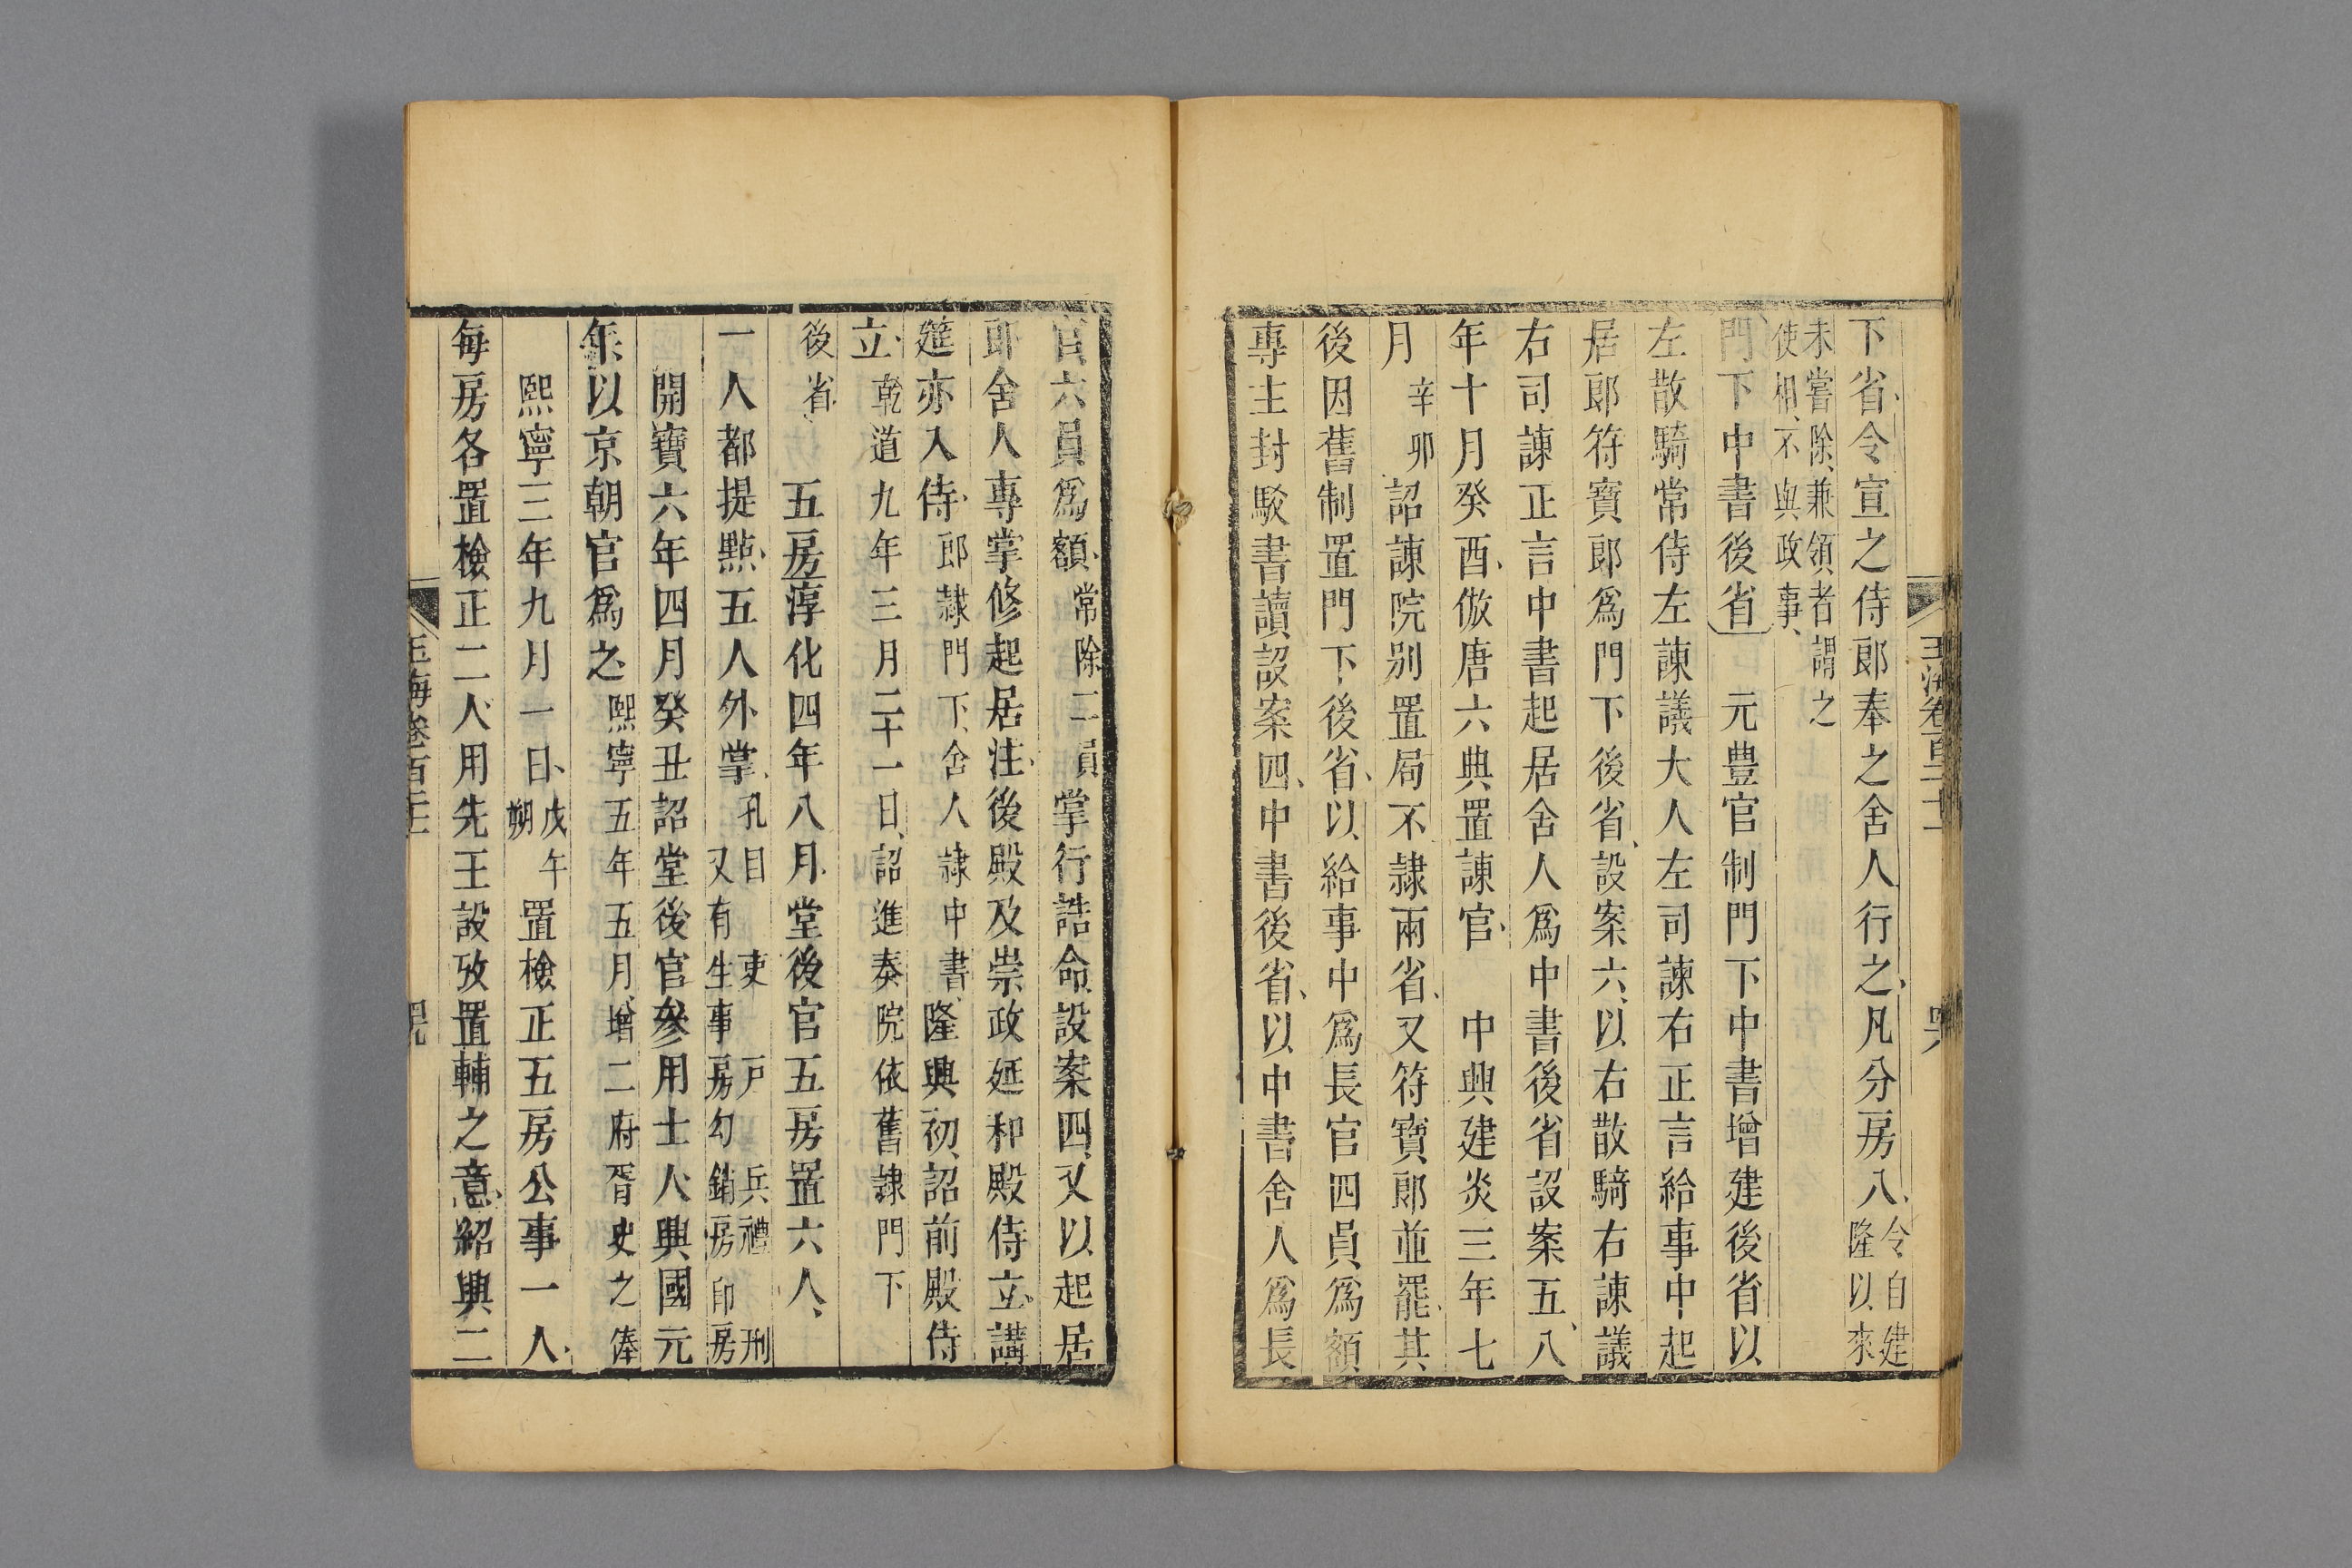 下省令宣之侍郎奉之舍人行之凡分房八令自建隆以來
未嘗除兼領者謂之使相不與政事
門下中書後省　元豊官制門下中書增建後省以
左散騎常侍左諫議大人左司諫右正言給事中起
居郎符寶郎爲門下後省設案六以右散騎右諫議
右司諫正言中書起居舍人爲中書後省設案五八
年十月癸酉倣唐六典置諫官　中興建炎三年七
月辛卯詔諫院别置局不隷兩省又符寶郎並罷其
後因舊制置門下後省以給事中爲長官四員爲額
專主封駁書讀設案四中書後省以中書舍人爲長
玉海卷百二十一
官六員爲額常除二員掌行誥命設案四又以起居
郎舍人專掌修起居注後殿及崇政延和殿侍立講
筵亦入侍郎隷門下舍人隷中書隆興初詔前殿侍
立乾道九年三月二十一日詔進奏院依舊隷門下
後省　五房淳化四年八月堂後官五房置六人
一人都提㸃五人外掌孔目　吏　戸　兵禮　刑又有生事房勾銷房印房
開寶六年四月癸丑詔堂後官參用士人興國元
年以京朝官爲之熙寧五年五月增二府胥史之俸
熙寧三年九月一日戊午朔置檢正五房公事一人
每房各置檢正二人用先王設攷置輔之意紹興二
玉海卷百二十一